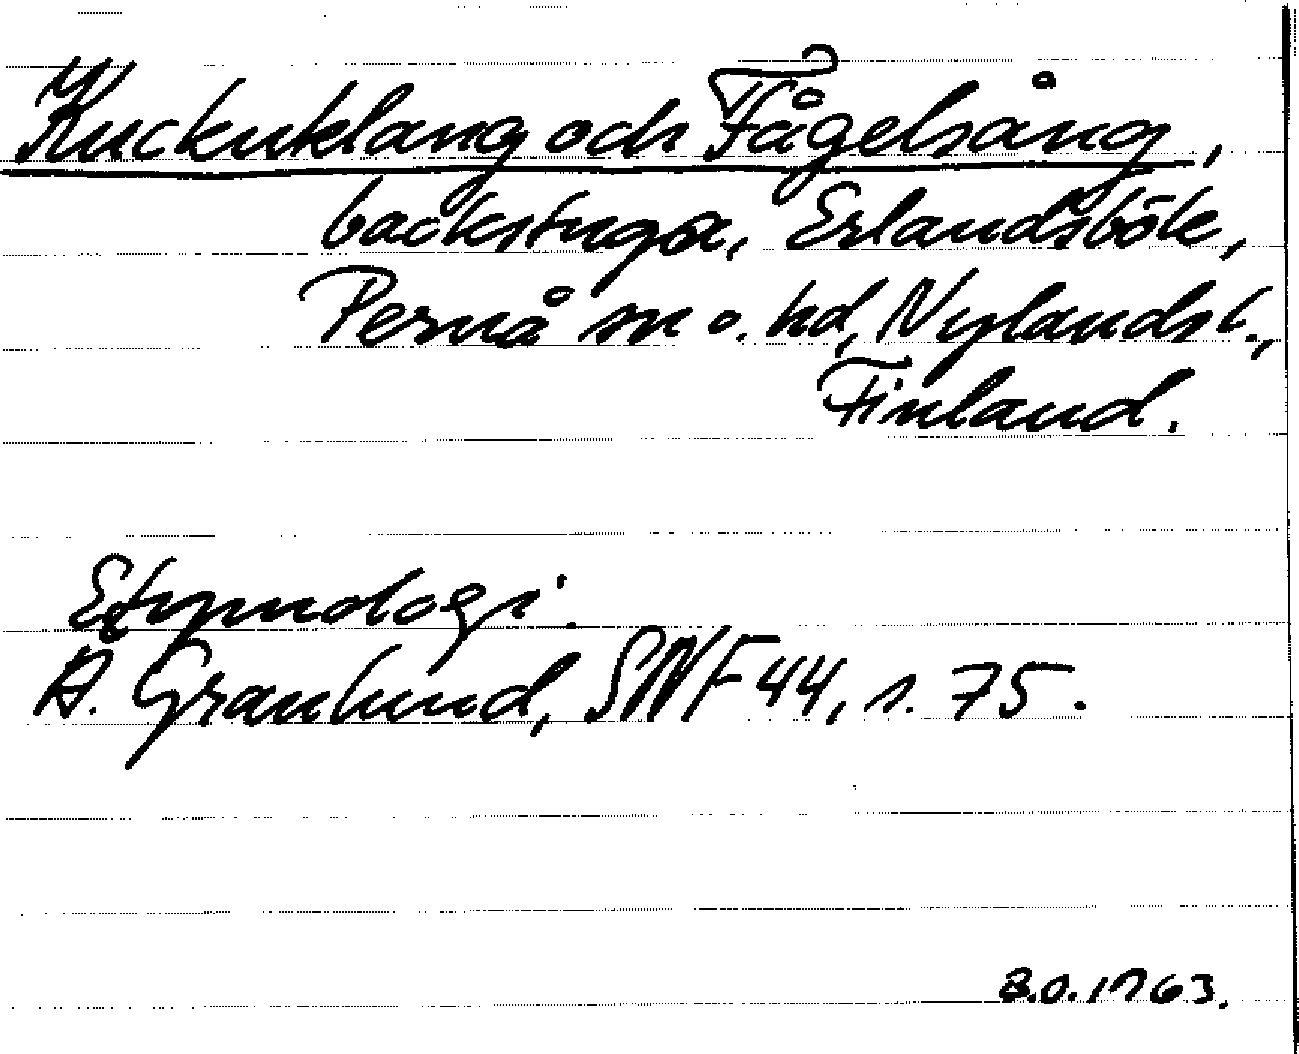 Kuckuklang och Fågelsång,
backstuga, Erlandsböle,
Pernå sn o. hd, Nylandsl.,
Finland.
Etymologi.
Å. Granlund, SNF 44, s. 75.
B.O. 1963.